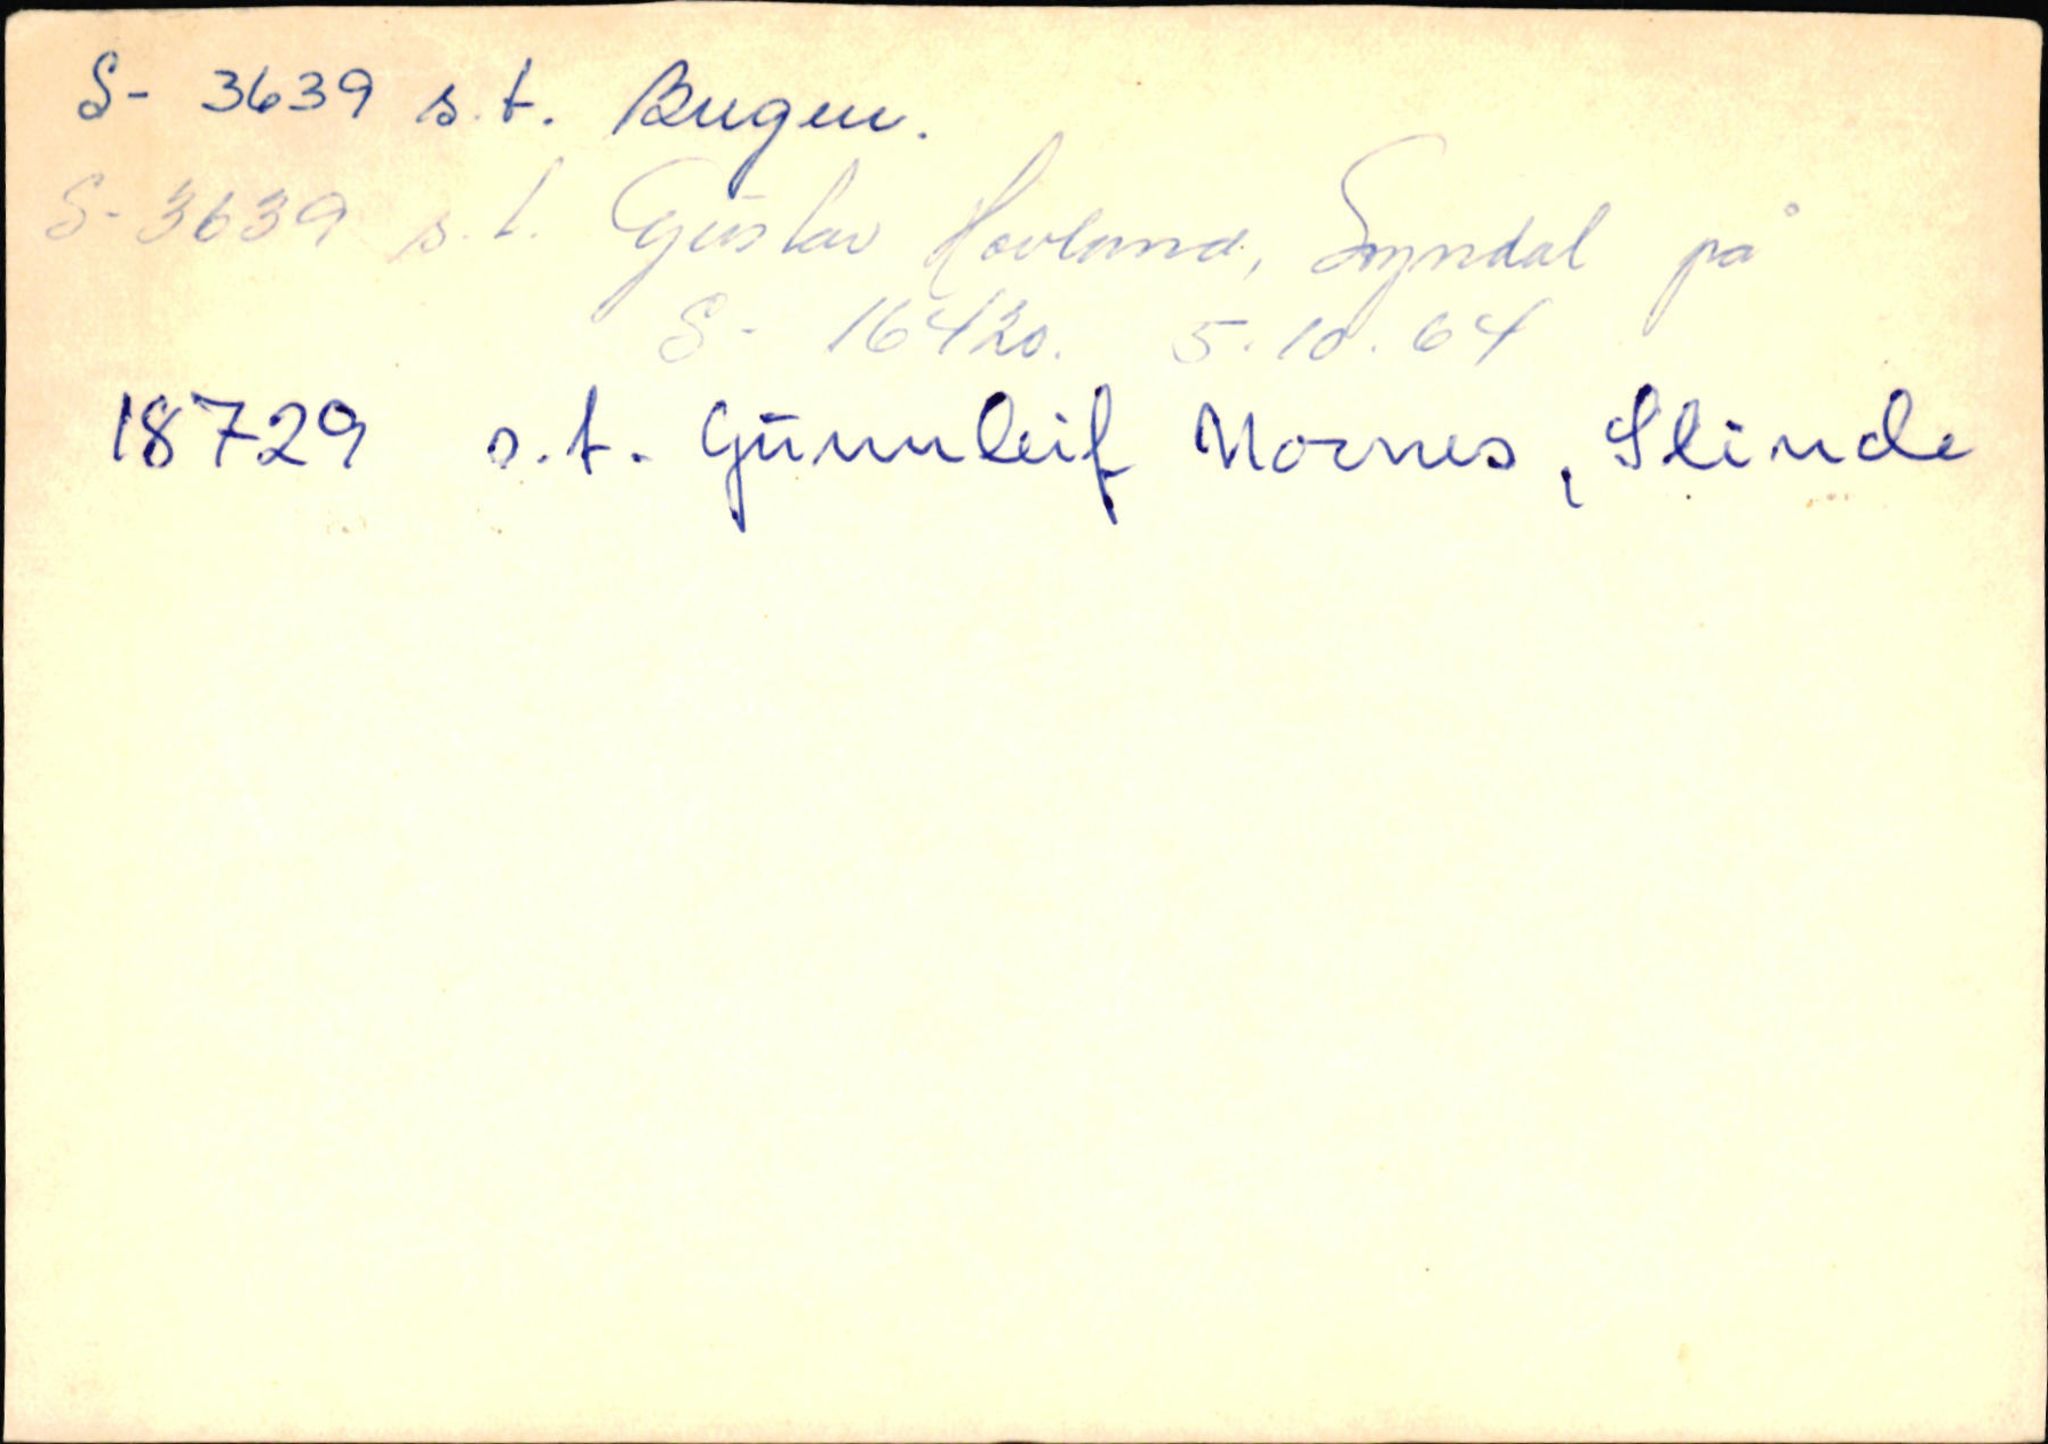 S- 3639 s.t. Bergen.
S-3639 s.t. Gustav Hovland, Syndal på
S- 16420. 5.10.64
18729 s.t. Gunnleif Nornes, Slinde